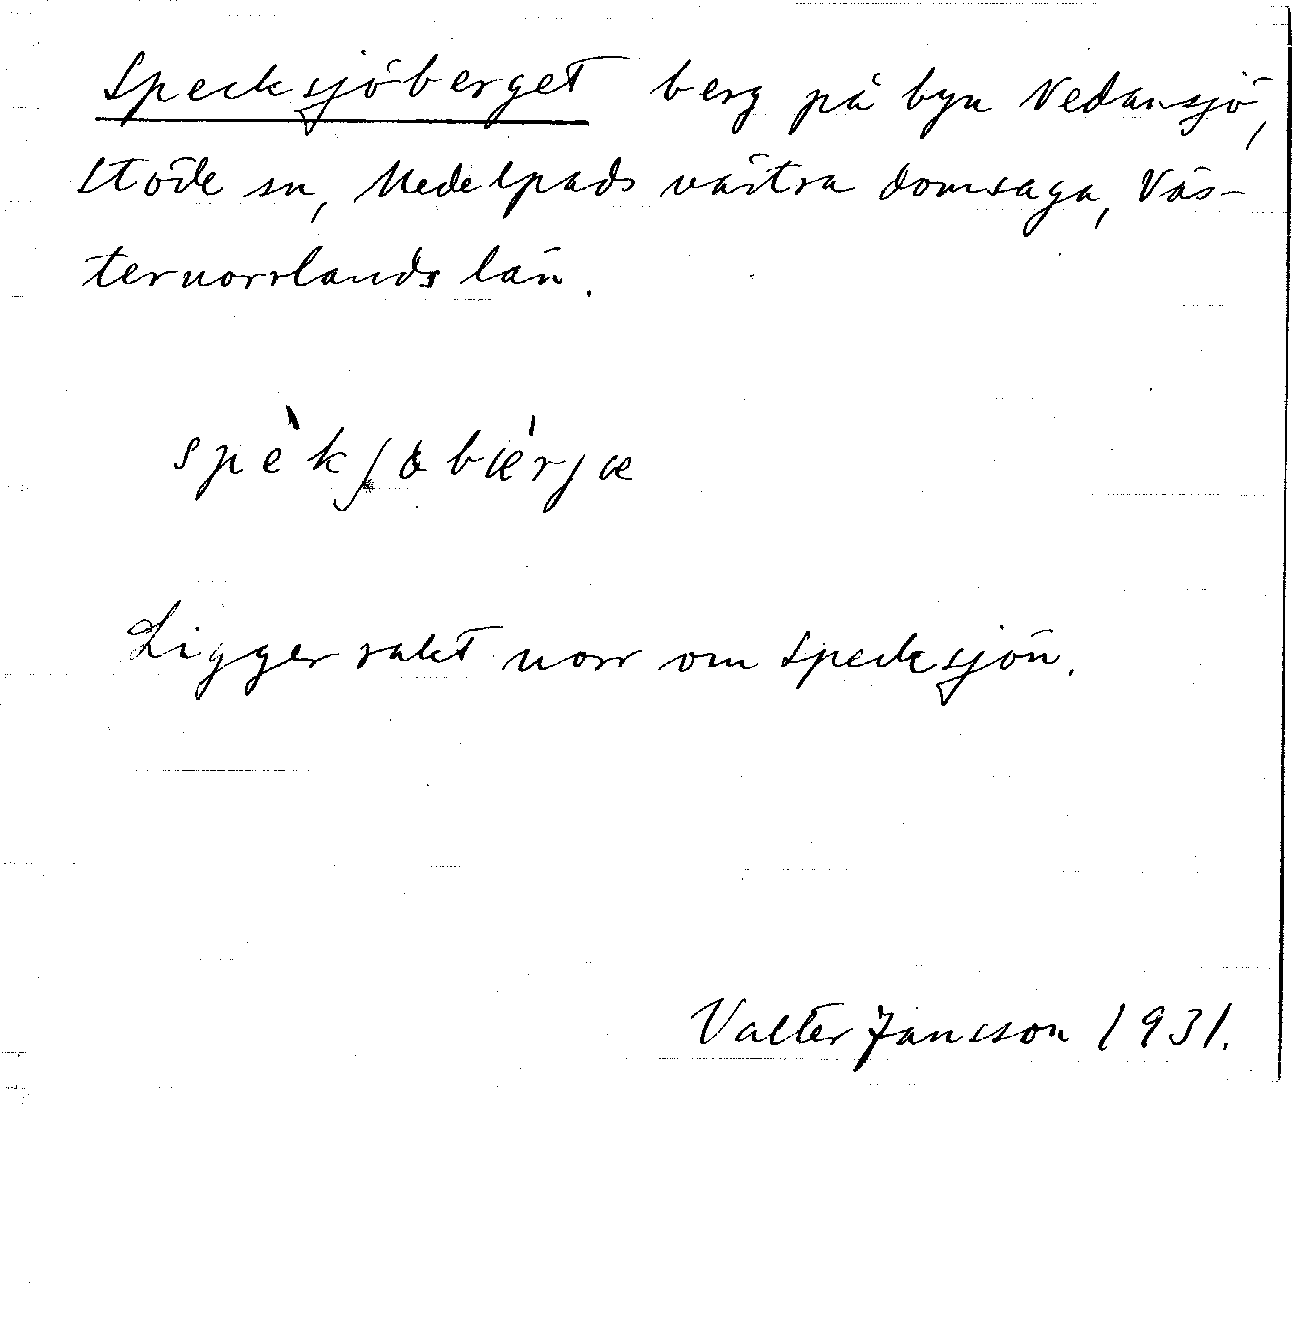 Specksjöberget berg på byn Nedansjö,
Stöde sn, Medelpads västra domsaga, Väs-
ternorrlands län.
spèkʃøbǽrjæ
Ligger rakt norr om Specksjön.
Valter Jansson 1931.